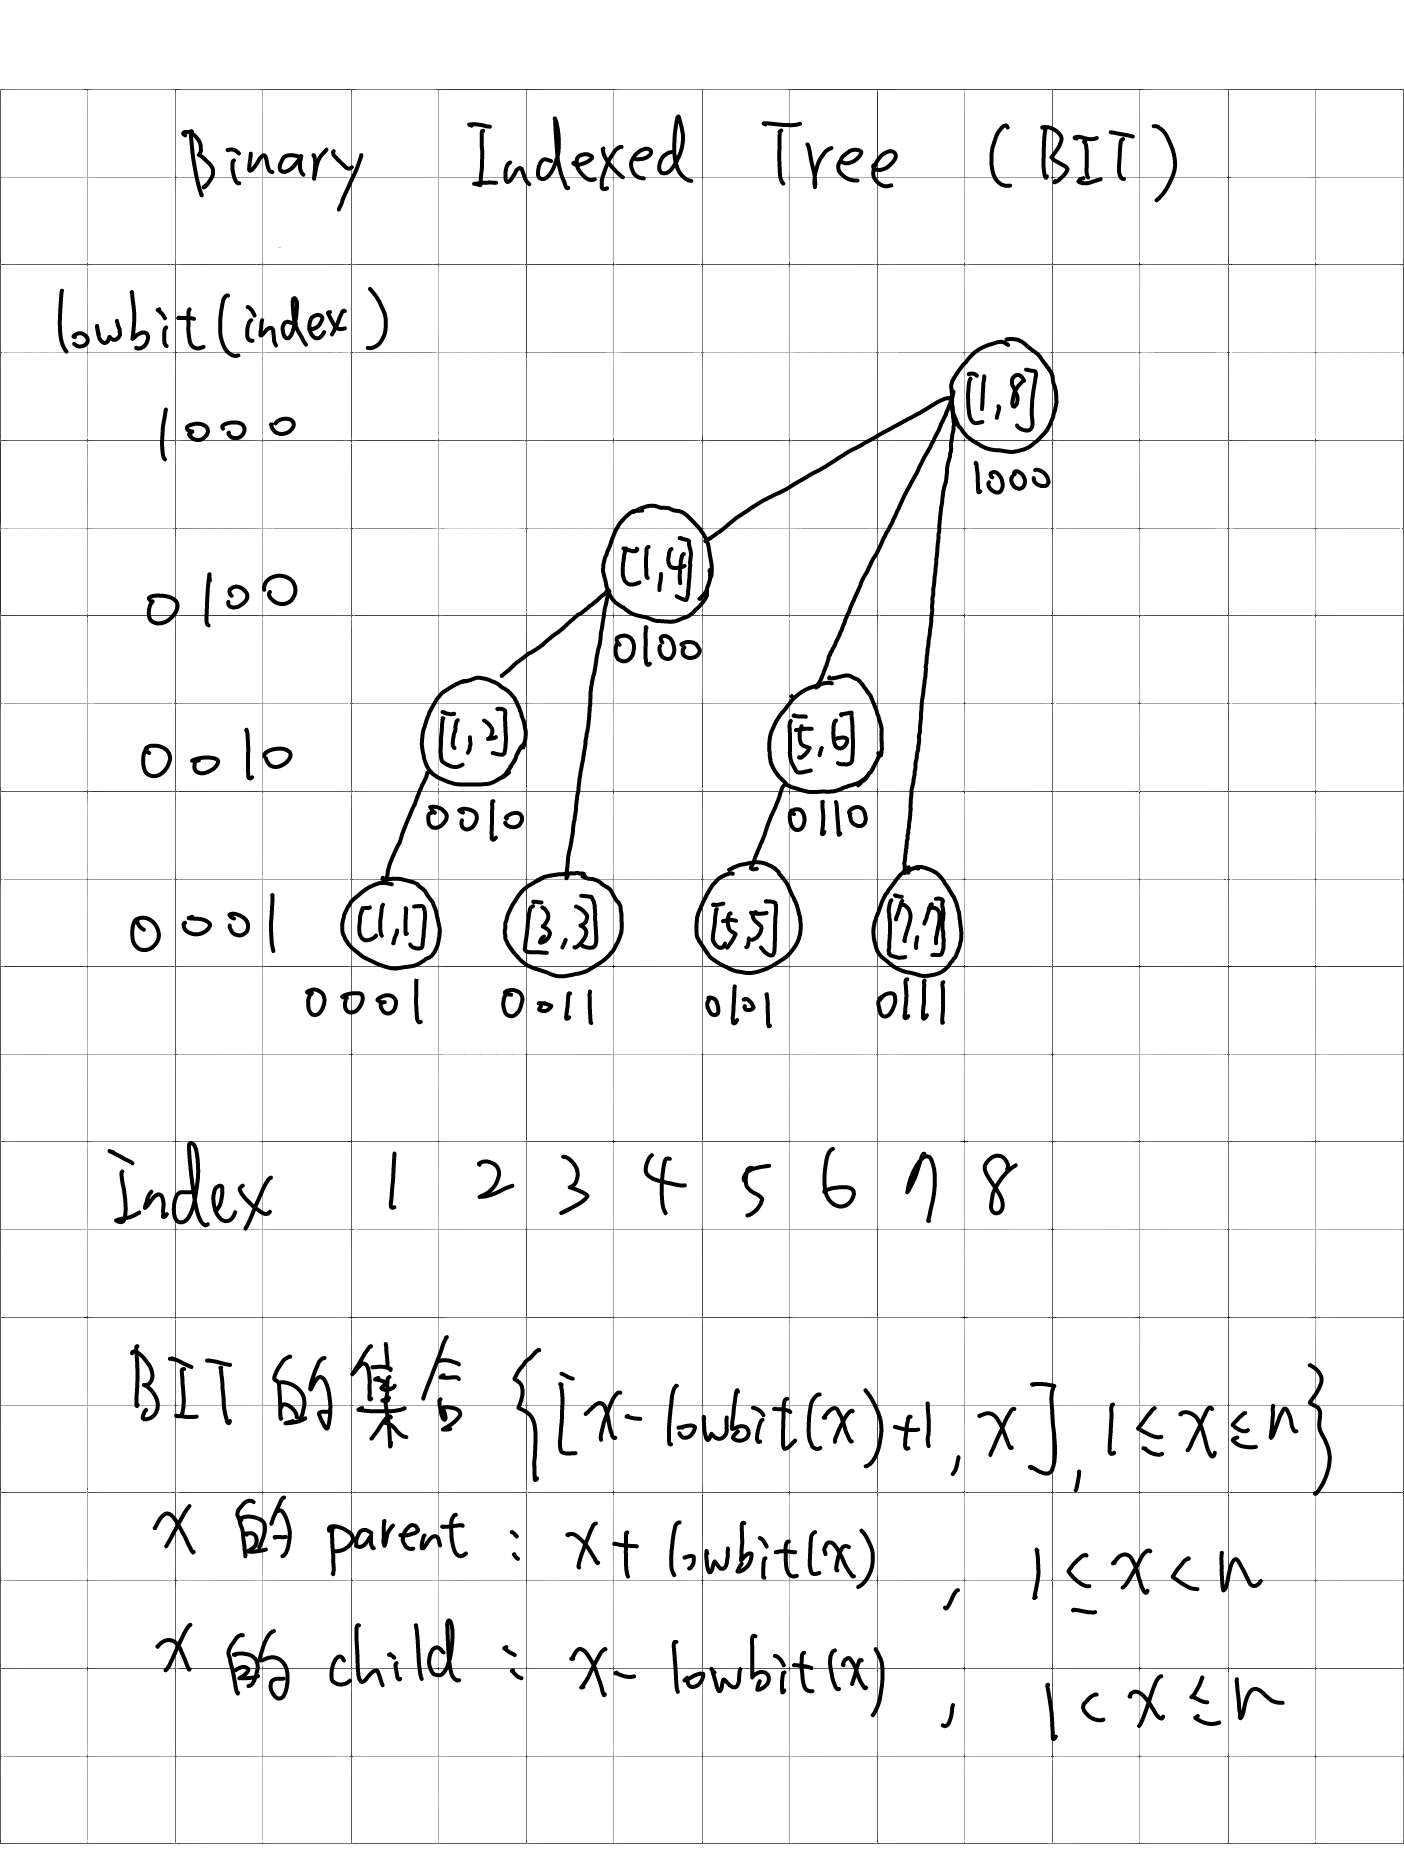 Binary Indexed Tree (BIT)
lowbit(index)
1000
[1,8]
1000
0100
[1,4]
0100
0010
[1,2]
[5,6]
0010
0110
0001
[1,1]
[3,3]
[5,5]
[7,7]
0001
0011
0101
0111
Index 1 2 3 4 5 6 7 8
BIT 的集合 {[x-lowbit(x)+1, x], 1≤x≤n}
x 的 parent : x+lowbit(x) , 1≤x<n
x 的 child : x-lowbit(x) , 1<x≤n